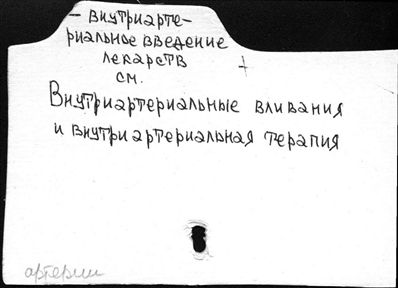 – внутриарте–
риальное введение
лекарств
см.
Внутриартериальные вливания
и внутриартериальная терапия
артерии